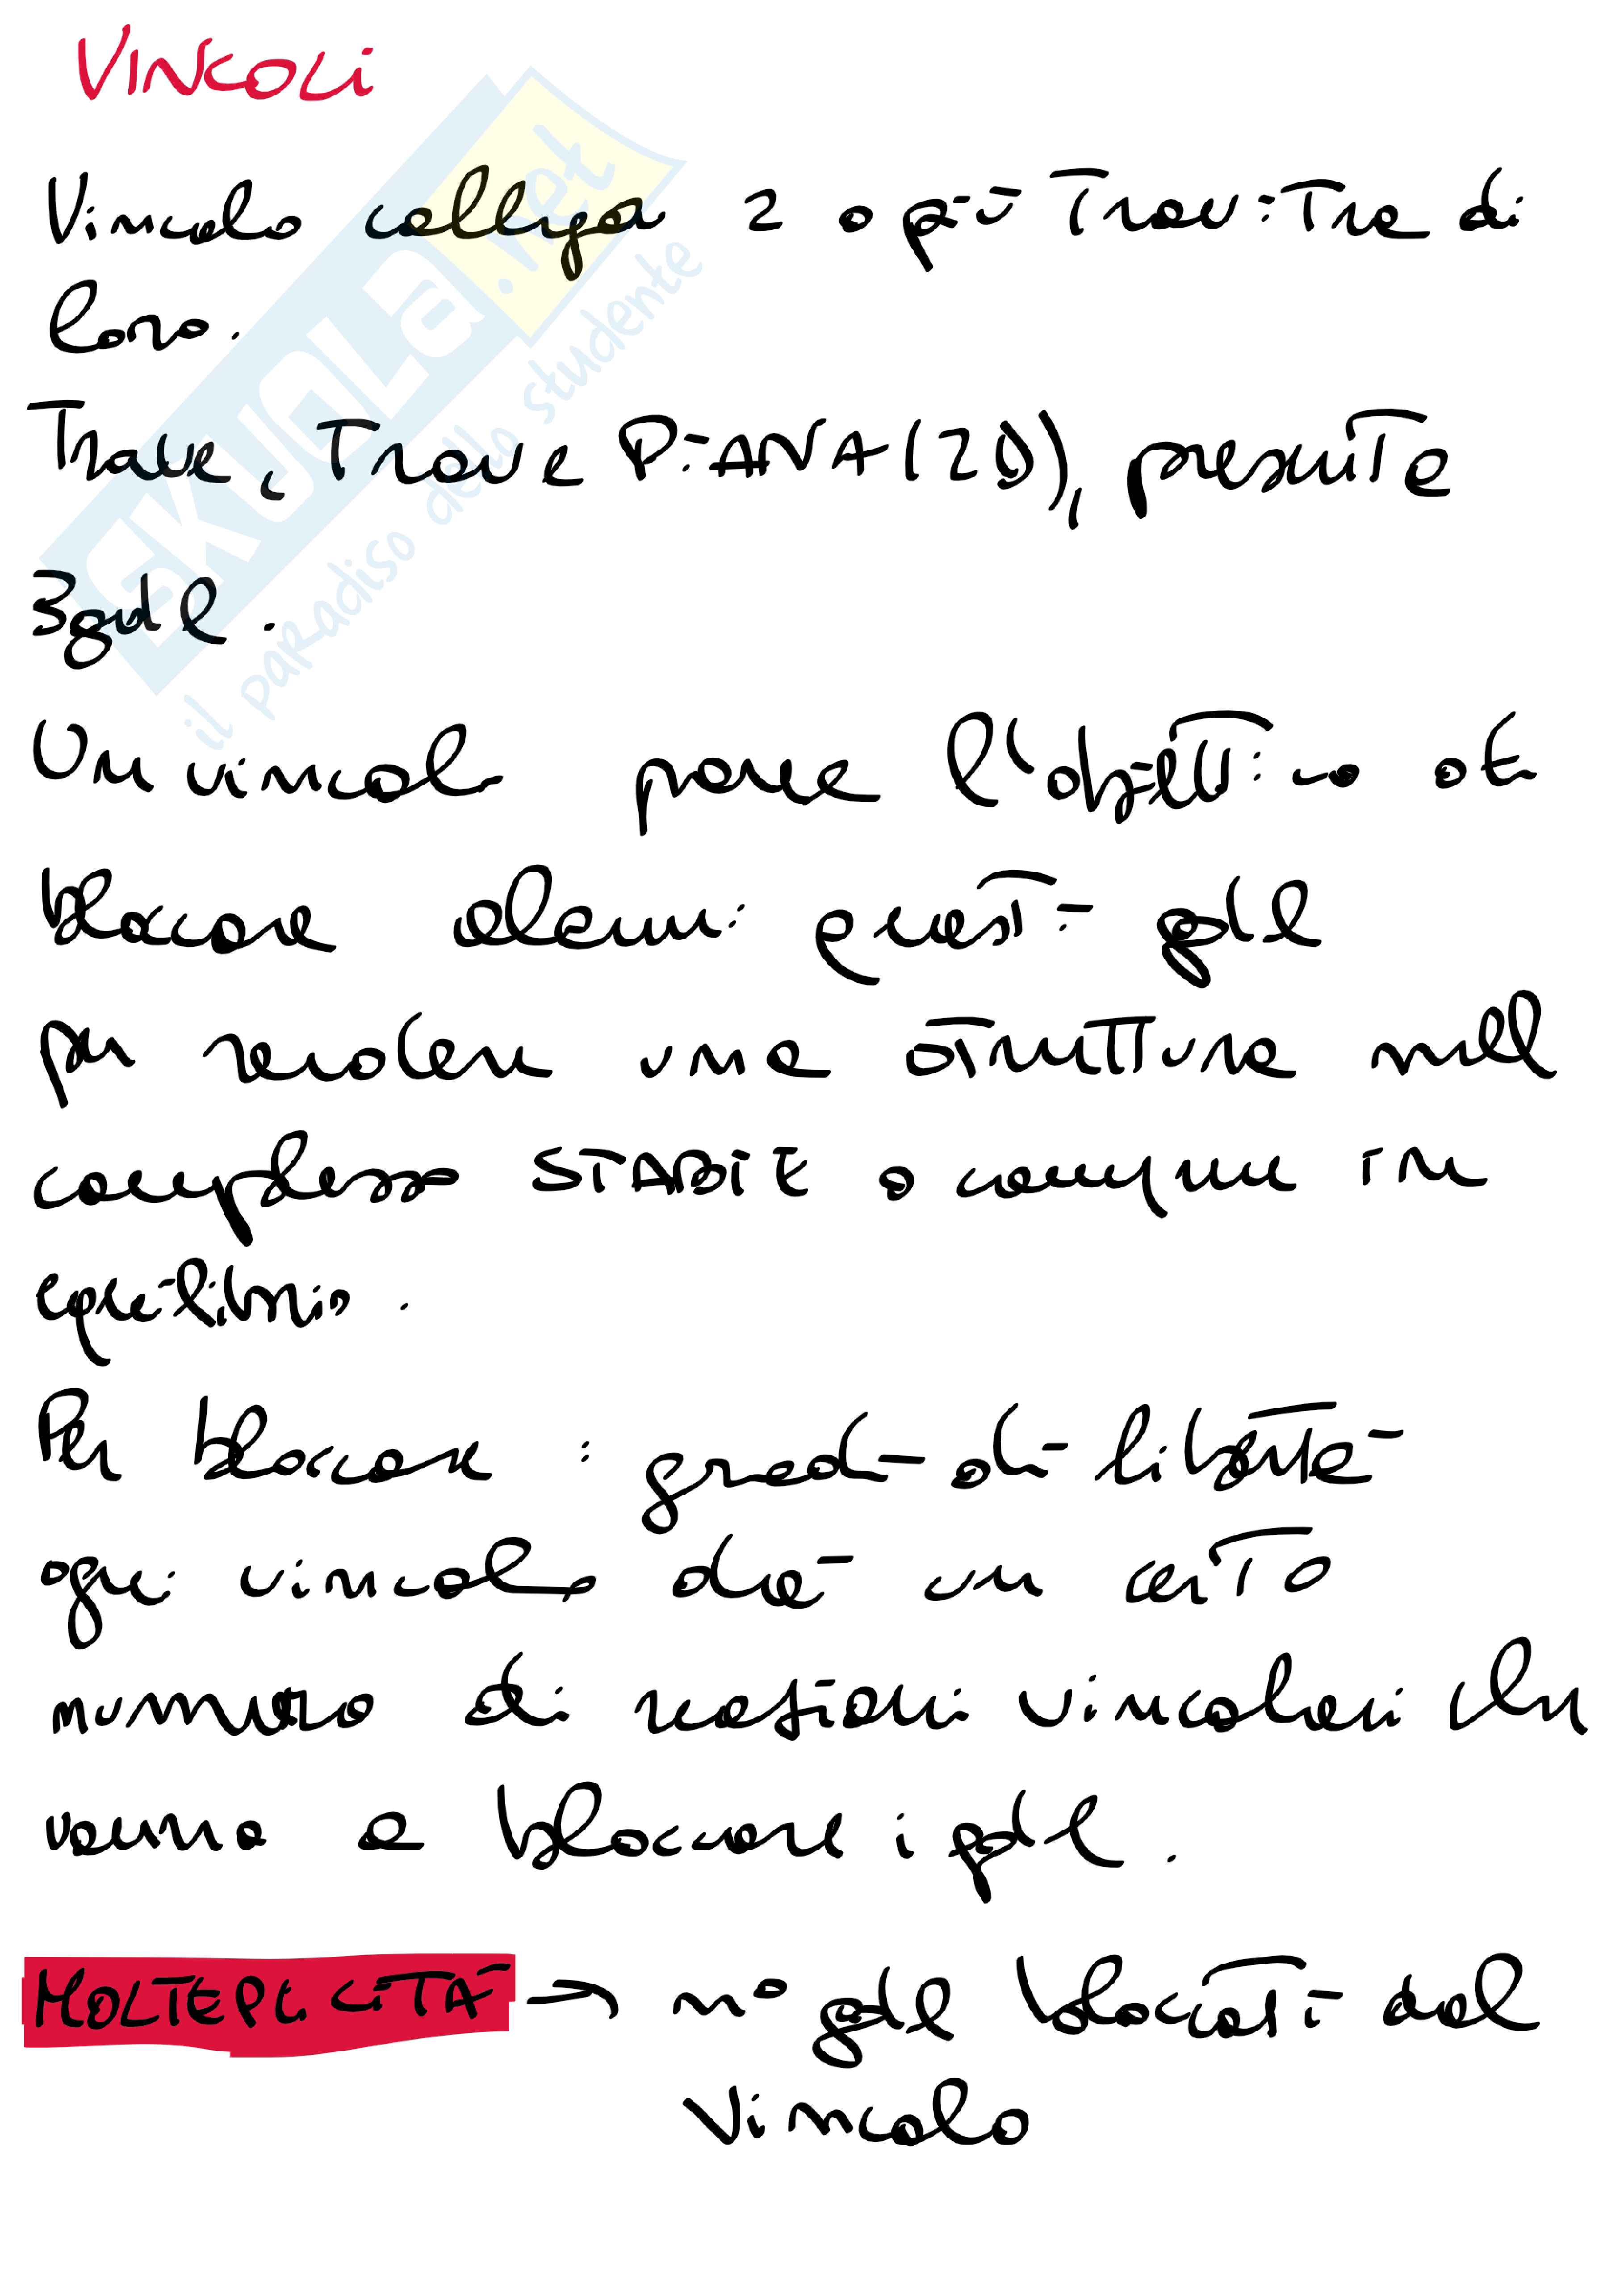 VINCOLI
Vincolo collega 2 o più travi tra di
loro.
Trave, Trave PIANA (2D), presenta
3 gdl.
Un vincolo pone l'obiettivo di
bloccare alcuni questi gdl
per rendere una struttura nel
complesso STABILE o comunque in
equilibrio.
Per bloccare i gradi di libertà
ogni vincolo dà un certo
numero di reazioni vincolari che
vanno a bloccare i gdl.
MOLTEPLICITÀ → n° gdl bloccati dal
Vincolo
SKUOLA.net
il paradiso dello studente